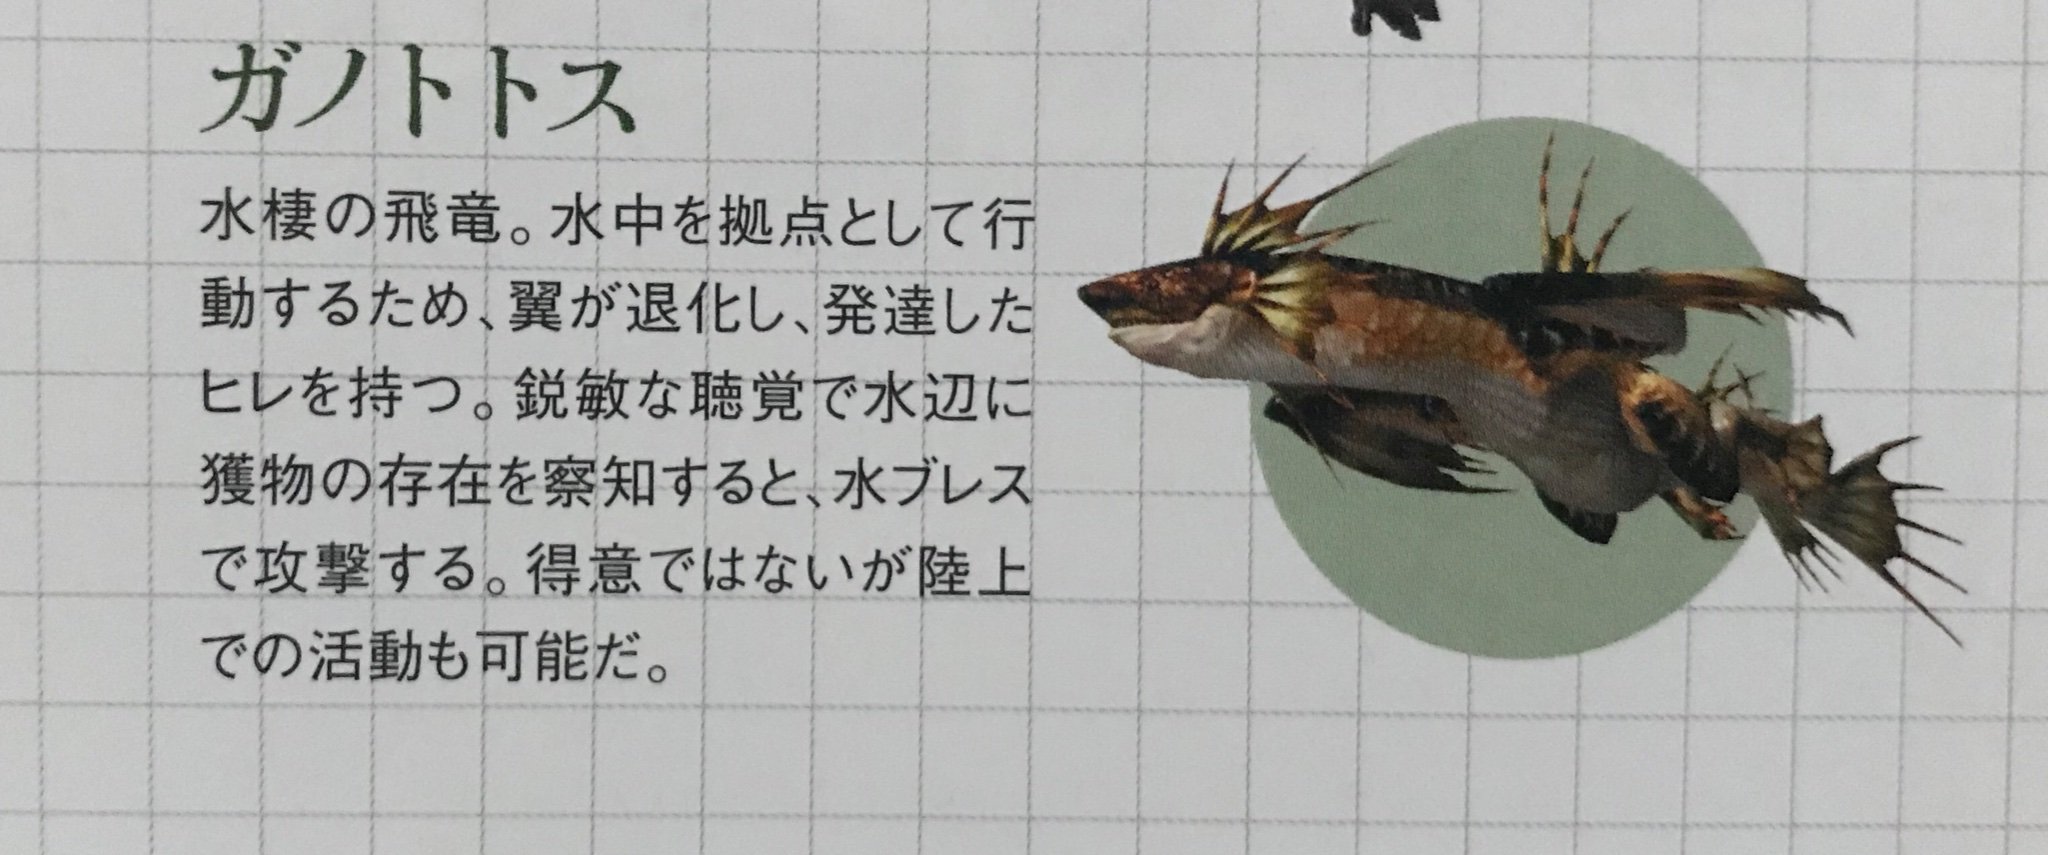 ガノトトス
水棲の飛竜。水中を拠点として行
動するため、翼が退化し、発達した
ヒレを持つ。鋭敏な聴覚で水辺に
獲物の存在を察知すると、水ブレス
で攻撃する。得意ではないが陸上
での活動も可能だ。